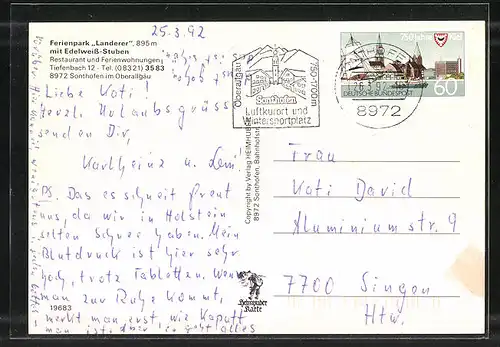 25.3.92
Ferienpark „Landerer", 895 m
mit Edelweiß-Stuben
Restaurant und Ferienwohnungen
Tiefenbach 12 - Tel. (08321) 3583
8972 Sonthofen im Oberallgäu
Liebe Kati!
herzl. Urlaubsgrüsse
senden Dir,
Karlheinz u. Leni
PS. Das es schneit freut
uns, da wir in Holstein
selten Schnee haben. Mein
Blutdruck ist hier sehr
hoch, trotz Tabletten. Wenn
man zur Ruhe kommt,
merkt man erst, wie kaputt
man ist, aber so geht alles
19683
Copyright by Verlag HEIMHUBER
8972 Sonthofen, Bahnhofstr.
Heimhuber
Karte
Oberallgäu
750-1700m
Sonthofen
Luftkurort und
Wintersportplatz
8972
750 Jahre Kiel
DEUTSCHE BUNDESPOST
60
Frau
Kati David
Aluminium str. 9
7700 Singen
Htw.